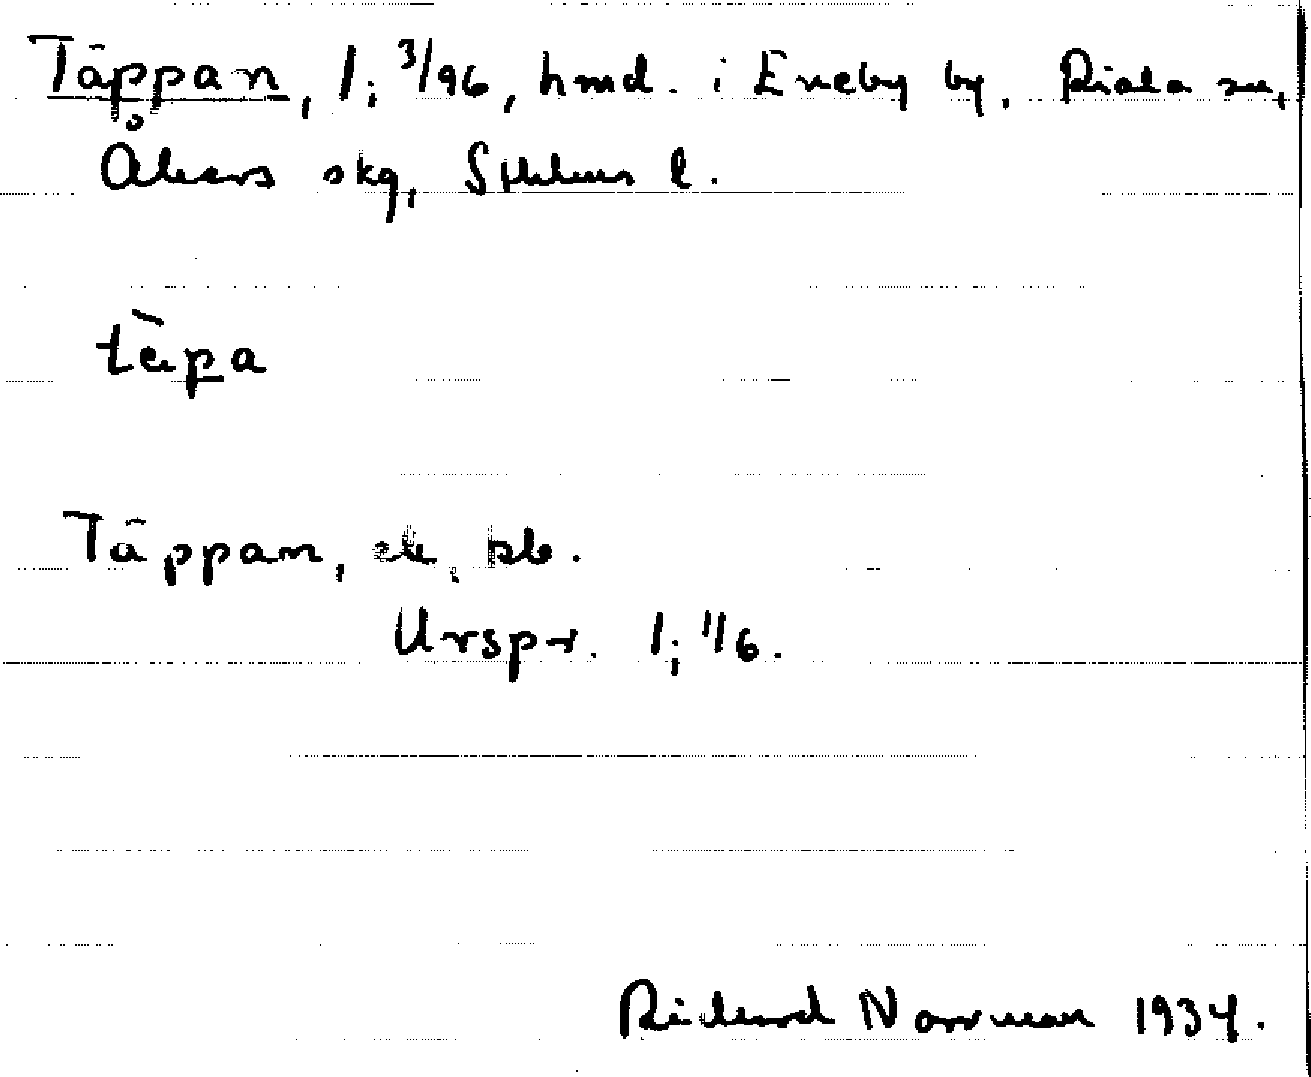 Täppan, 1; 3/96, hmd. i Eneby by, Riala sn,
Åkers skg, Sthlms l.
tèpa
Täppan, ek. kb.
Urspr. 1; 11/6.
Rickard Norrman 1934.